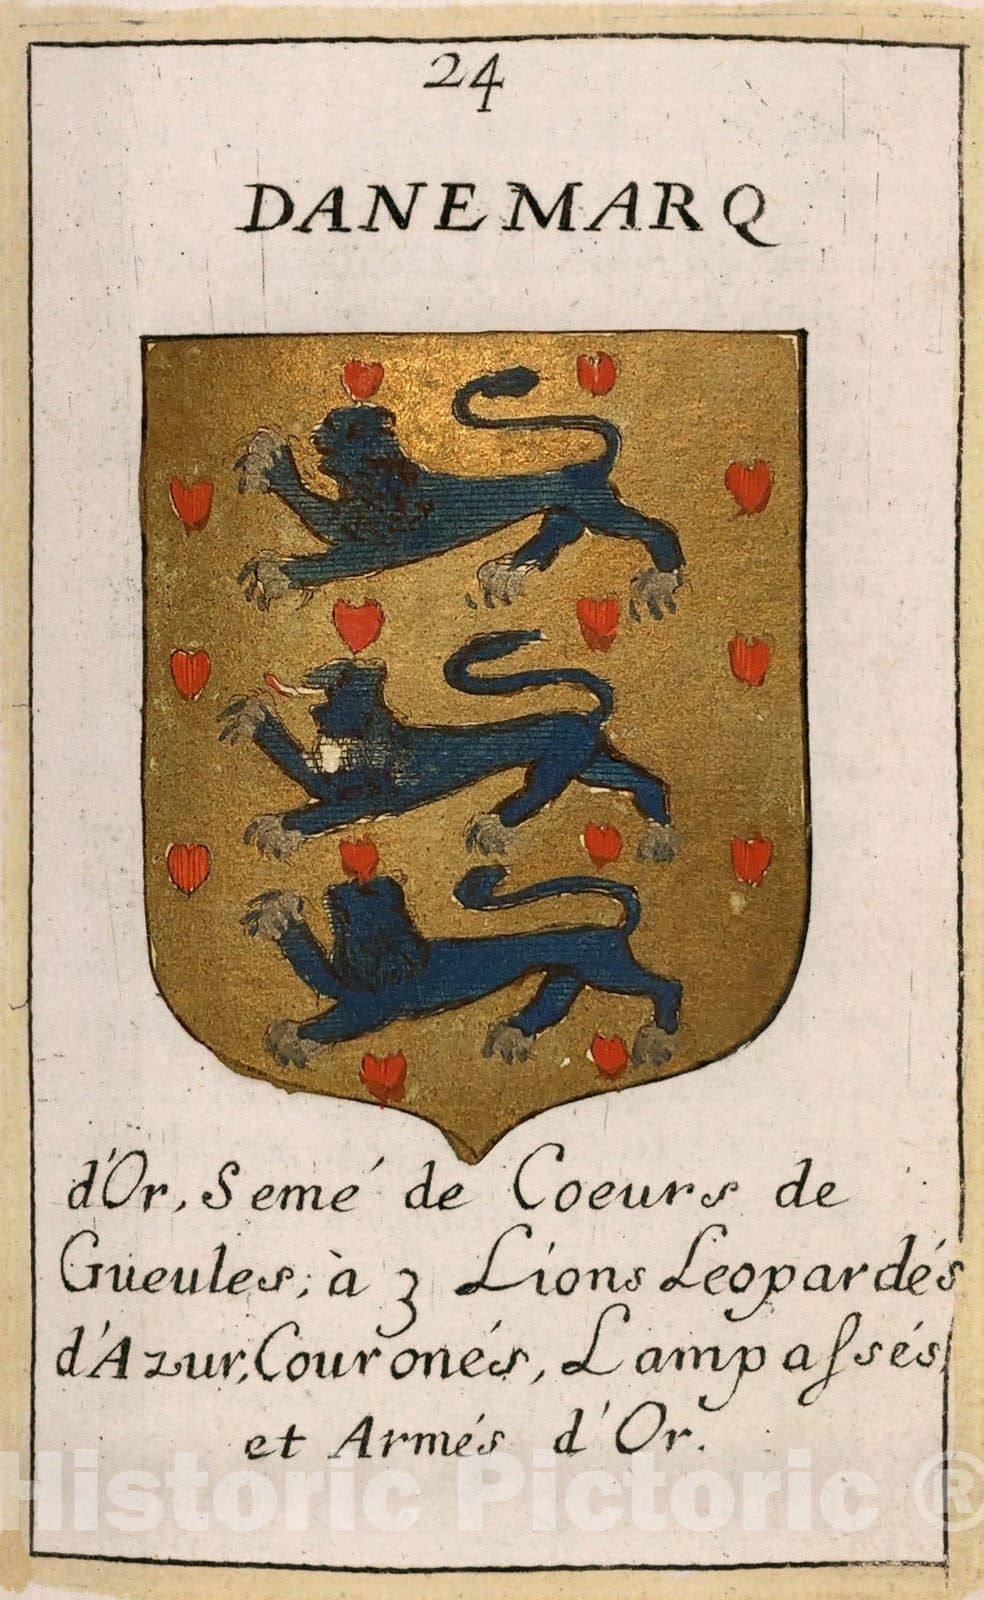 24
DANEMARQ
d'Or, Semé de Coeurs de
Gueules, à 3 Lions Leopardés
d'Azur, Couronés, Lampaſsés,
et Armés d'Or.
Historic Pictoric ®